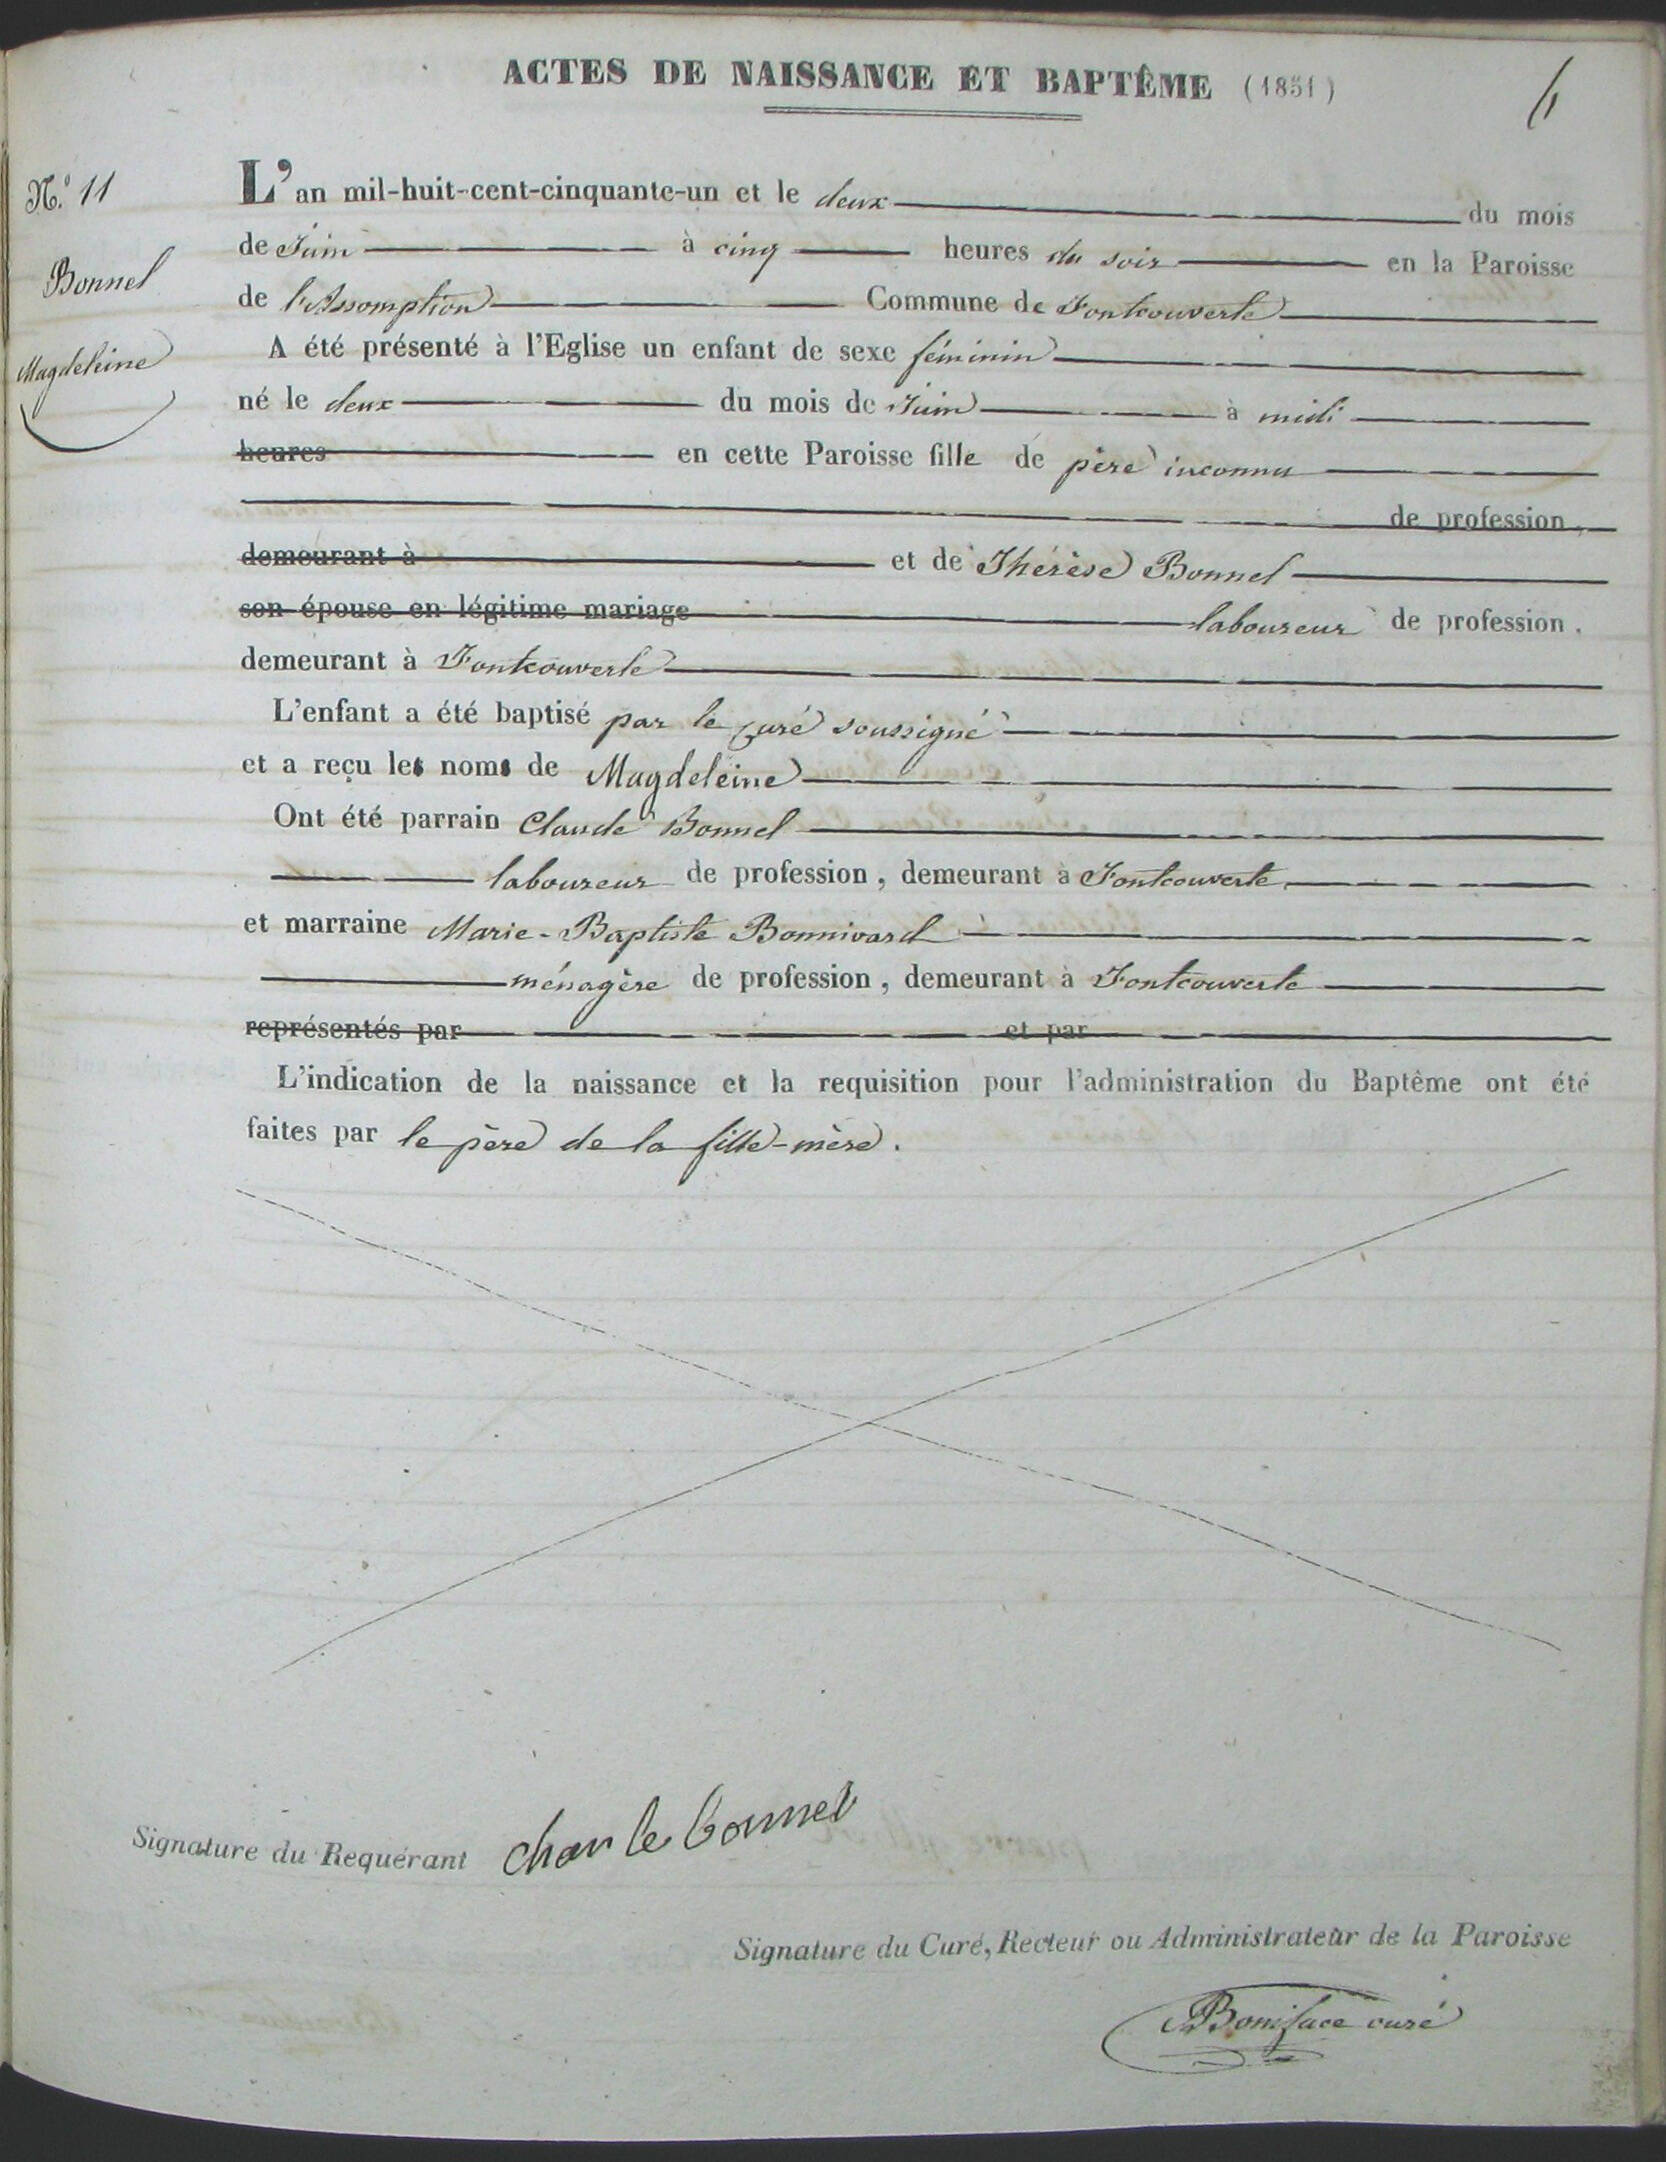 ACTES DE NAISSANCE ET BAPTÊME (1851)
6
N.º 11
Bonnel
Magdeleine
L'an mil-huit-cent-cinquante-un et le deux du mois
de Juin à cinq heures du soir en la Paroisse
de l'Assomption Commune de Fontcouverte
A été présenté à l'Eglise un enfant de sexe féminin
né le deux du mois de Juin à midi
heures en cette Paroisse fille de père inconnu
de profession,
demeurant à et de Thérèse Bonnel
son épouse en légitime mariage laboureur de profession.
demeurant à Fontcouverte
L'enfant a été baptisé par le curé soussigné
et a reçu les noms de Magdeleine
Ont été parrain Claude Bonnel
laboureur de profession, demeurant à Fontcouverte
et marraine Marie-Baptiste Bonnivard
ménagère de profession, demeurant à Fontcouverte
représentés par et par
L'indication de la naissance et la requisition pour l'administration du Baptême ont été
faites par le père de la fille-mère.
Signature du Requérant charle bonnel
Signature du Curé, Recteur ou Administrateur de la Paroisse
Boniface curé